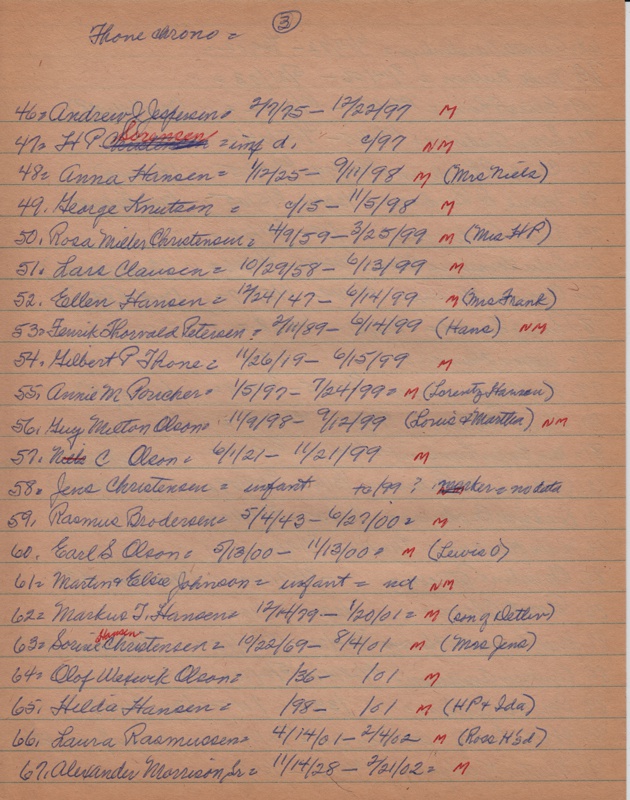 3
Thone chrono =
46= Andrew J Jespersen= 2/7/75 – 12/22/97 M
47= H P Sorensen = inf d. c/97 NM
48= Anna Hansen = 1/12/25 – 9/11/98 M (Mrs Niels)
49. George Knutson = c/15 – 11/5/98 M
50. Rosa Miller Christensen = 4/9/59 – 3/25/99 M (Mrs HP)
51. Lars Clausen = 10/29/58 – 6/13/99 M
52. Ellen Hansen = 12/24/47 – 6/14/99 M (Mrs Frank)
53= Henrik Thorvald Petersen = 2/11/89 – 6/14/99 (Hans) NM
54. Gilbert P Thone = 11/26/19 – 6/15/99 M
55. Annie M = 1/5/97 – 7/24/99 = M (Lorentz Hansen)
56. Guy Milton Olson= 11/9/98 – 9/12/99 (Louis & Martha) NM
57. Nils C Olson = 6/1/21 – 11/21/99 M
58= Jens Christensen = infant = no data
59. Rasmus Brodersen= 5/4/43 – 6/27/00 = M
60. Earl S Olson = 5/13/00 – 11/13/00 = M (Lewis O)
61= Martin & Elsie Johnson = infant = nd NM
62= Markus T. Hansen= 12/14/79 – 1/20/01 = M (son of Detlev)
63= Hansen Christensen = 10/22/69 – 8/4/01 M (Mrs Jens)
64= Olof Olson= /36 – /01 M
65. Hilda Hansen = /98 – /01 M (HP & Ida)
66. Laura Rasmussen= 4/14/01 – 2/4/02 M
67. Alexander Morrison, Sr = 11/14/28 – 2/21/02 = M